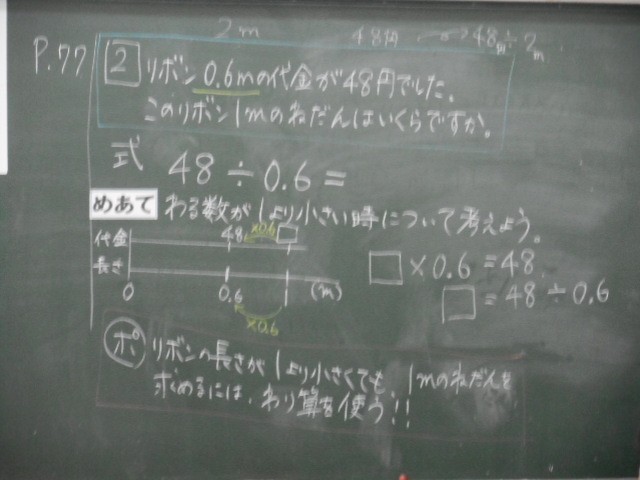 2m 48円 48÷2
P.77
2 リボン0.6mの代金が48円でした。
このリボン1mのねだんはいくらですか。
式 48÷0.6=
めあて わる数が1より小さい時について考えよう。
代金 48 ×0.6 □
長さ
0 0.6 (m)
×0.6
□×0.6=48
□=48÷0.6
ポ リボンの長さが1より小さくても、1mのねだんを
求めるには、わり算を使う!!